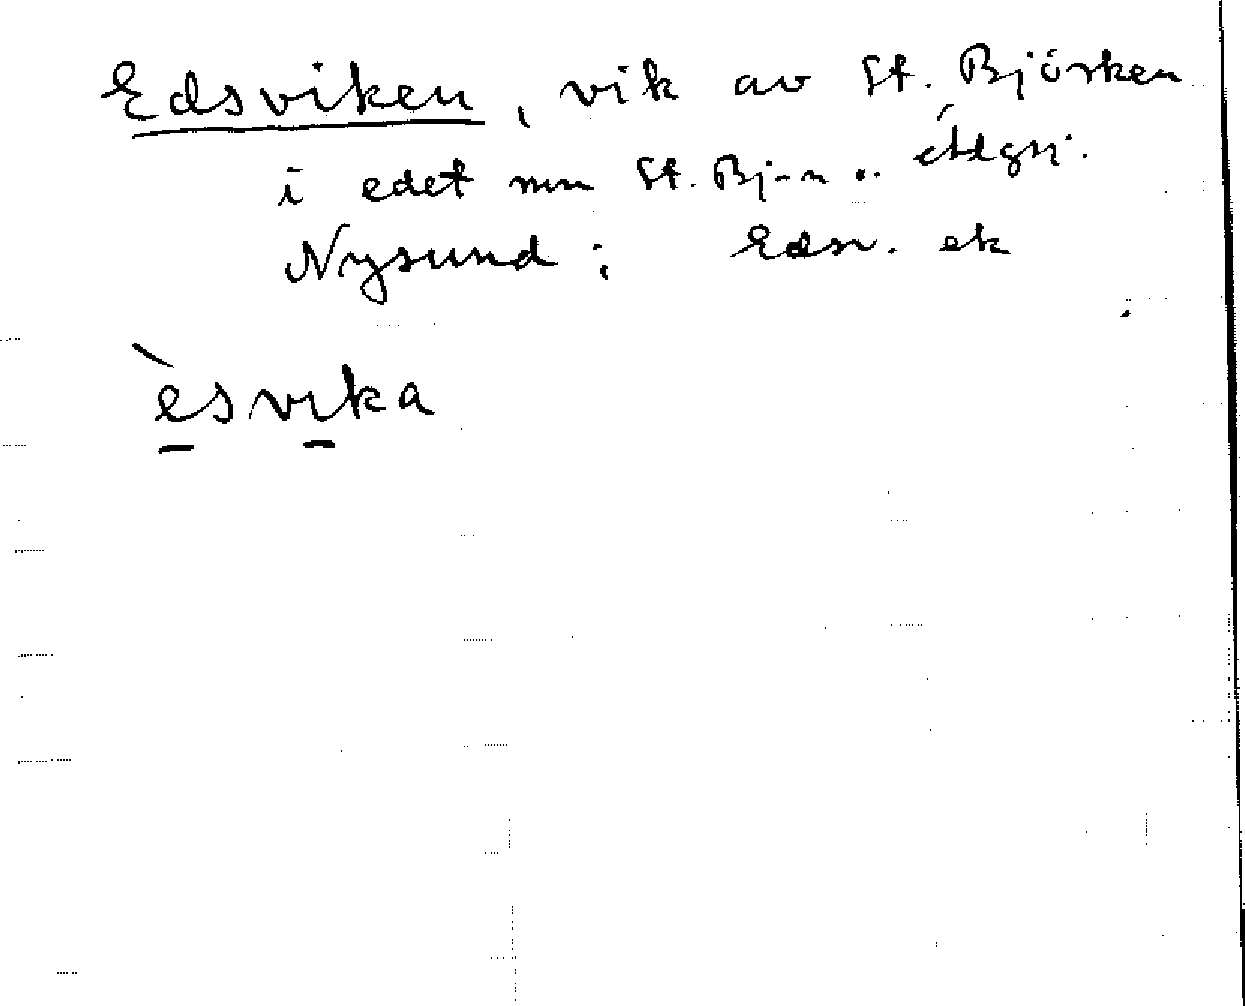 Edsviken, vik av St. Björken
i edet mn St. Bj-n o.
Nysund; Edsv. ek
èsvika